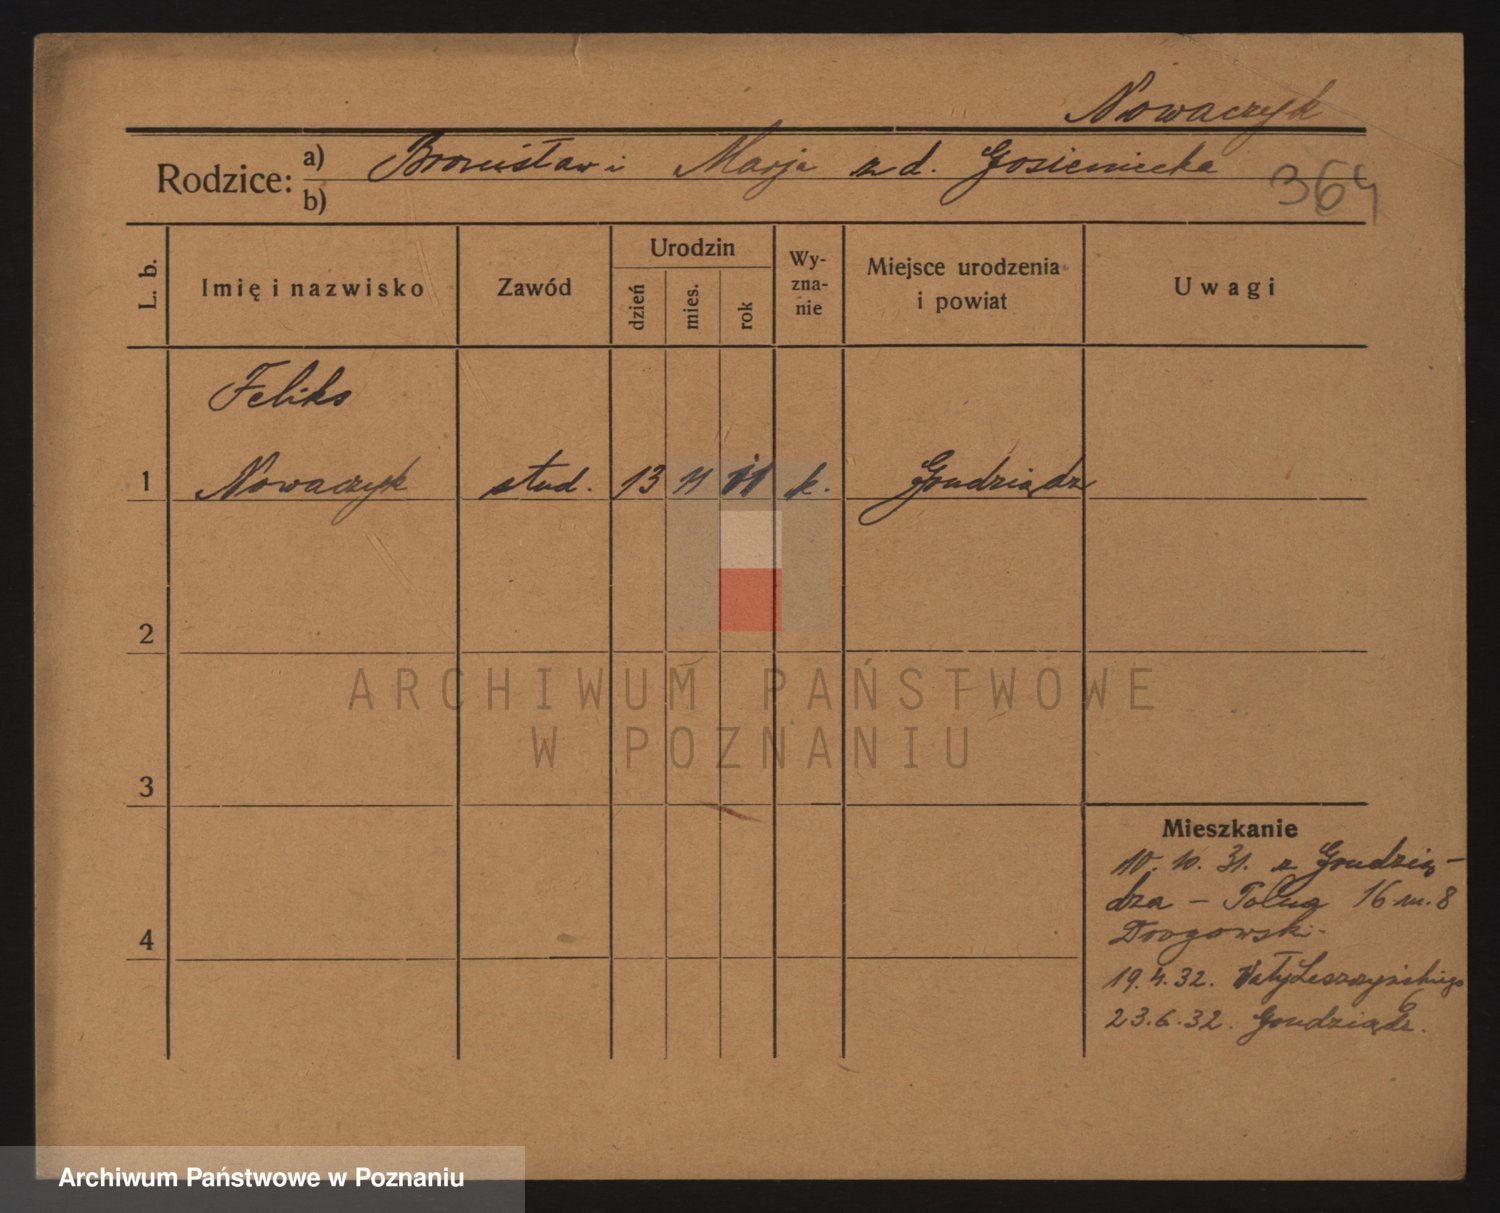 Nowaczyk
Rodzice: a) Bronisław i Marja z d. Gosieniecka
b)
364
L. b.
Imię i nazwisko
Zawód
Urodzin
dzień
mies.
rok
Wy-
zna-
nie
Miejsce urodzenia
i powiat
Uwagi
Feliks
1 Nowaczyk stud. 13 11 11 k. Grudziądz
2
3
4
Mieszkanie
10. 10. 31. z Grudzią-
dza - Polna 16 m. 8
Drogowski.
19.4.32. Wały Leszczyńskiego
6
23.6.32. Grudziądz.
ARCHIWUM PAŃSTWOWE
W POZNANIU
Archiwum Państwowe w Poznaniu